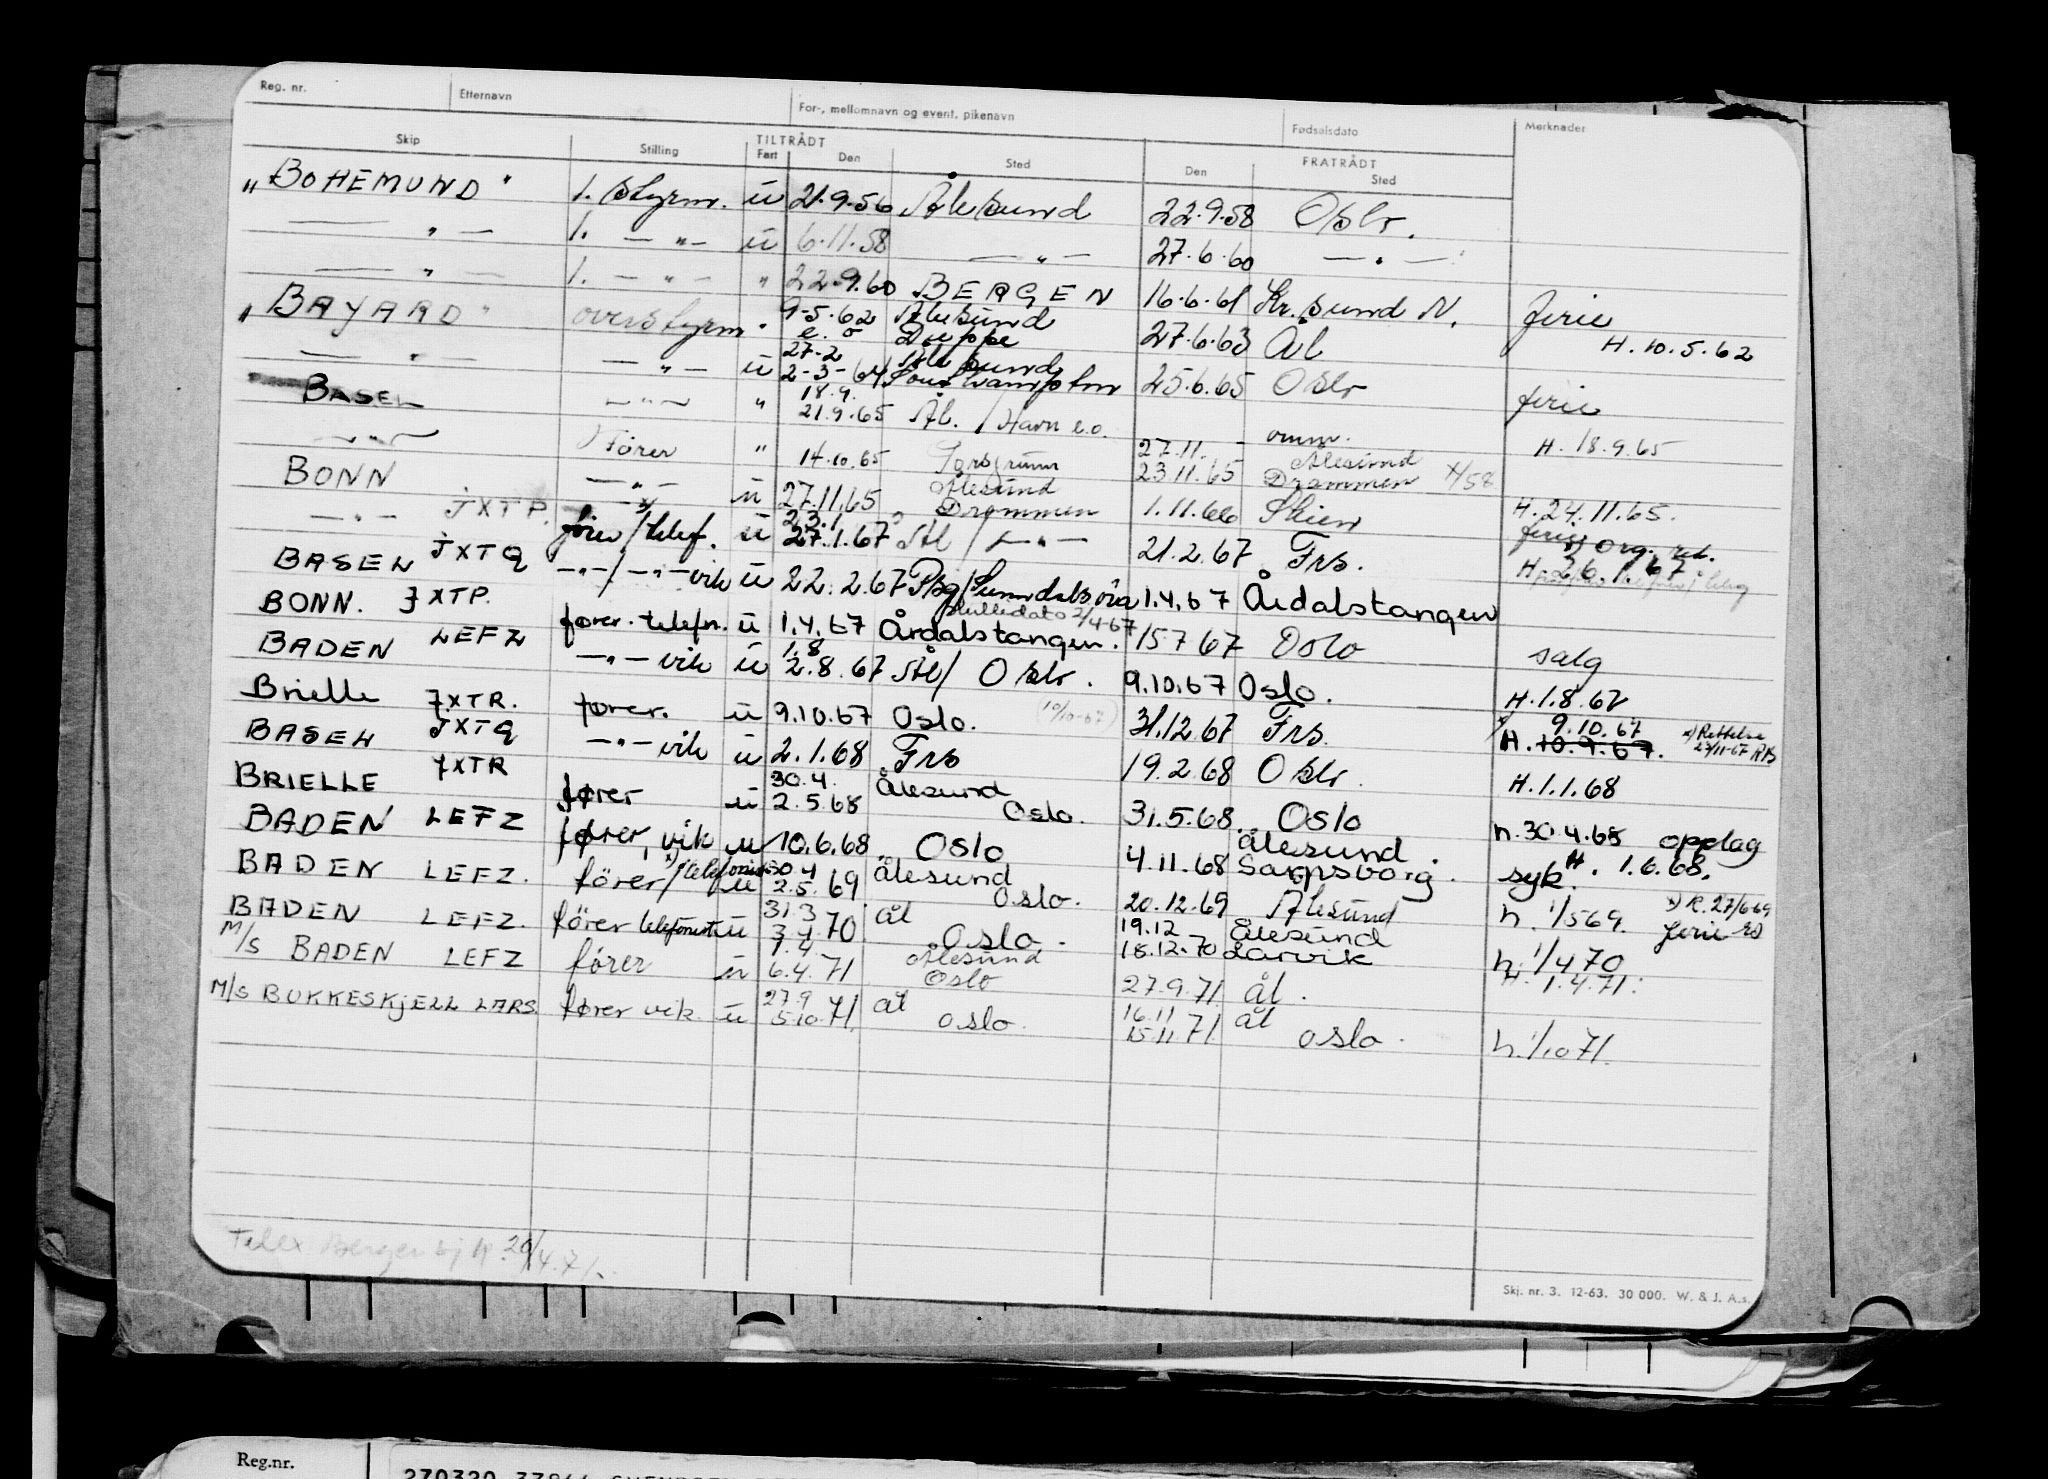 Reg. nr. Etternavn For-, mellomnavn og event. pikenavn Fødselsdato Merknader
TILTRÅDT FRATRÅDT
Skip Stilling Fart Den Sted Den Sted
"BOHEMUND" 1. Styrm. ü 21.9.56 Ålesund 22.9.58 Oslo.
— " — 1. — " — ü 6.11.58 — " — 27.6.60 — " —
— " — 1. — " — " 22.9.60 BERGEN 16.6.61 Kr.sund N. ferie
"BAYARD" overstyrm. " 9-5.62 Ålesund 27.6.63 Ål H. 10.5.62
— " — — " — ü 27-2 2-3-64 Ålesund Southampton 25.6.65 Oslo ferie
BASEL — " — " 18.9. 21.9.65 Ål. / Havn e.o. omm. H. 18.9.65
— " — Fører " 14.10.65 27.11. 23.11.65 Ålesund Drammen x/58
BONN — " — ü 27.11.65 Ålesund Drammen 1.11.66 Skien H. 24.11.65.
— " — JXTP. fører/telef. ü 23.1 27.1.67 Ål / — " — 21.2.67 Frs. H. 26.1.67
BASEL JXTQ — " — / — " — vik ü 22.2.67 Psg/Sunndalsöra 1.4.67 Årdalstangen
BONN. JXTP. fører.telefn. ü 1.4.67 Årdalstangen. 15.7.67 Oslo salg
BADEN LEFZ — " — vik ü 1.8 2.8.67 Ål/ Oslo. 9.10.67 Oslo. H.1.8.67
Brielle JXTR. fører. ü 9.10.67 Oslo. (10/10-67) 31.12.67 Frs. x/ 9.10.67 H. 10.9.67. x) Rettelse 27/11-67
BASEL JXTQ — " — vik ü 2.1.68 Frs 19.2.68 Oslo. H.1.1.68
BRIELLE JXTR fører ü 30.4. 2.5.68 Ålesund Oslo. 31.5.68. Oslo h.30.4.68 opplag
BADEN LEFZ fører, vik ü 10.6.68 Oslo 4.11.68 Ålesund. Sarpsborg. syk. H. 1.6.68.
BADEN LEFZ. fører/telefonist ü 30.4 2.5.69 Ålesund Oslo. 20.12.69 Ålesund h. 1/569. x) R. 27/6-69
BADEN LEFZ. fører telefonist ü 31.3 3.4.70 ål Oslo. 19.12 18.12.70 Ålesund Larvik h. 1/470 ferie
M/S BADEN LEFZ fører ü 1.4 6.4.71 Ålesund Oslo 27.9.71. ål. H. 1.4.71.
M/S BUKKESKJELL LARS. fører vik. ü 27.9 5.10.71. ål oslo. 16.11 15.11.71. ål oslo. h.1/1071.
Telex Bergen 20/4.71.
Skj. nr. 3. 12-63. 30 000. W. & J. A.s.
Reg.nr.